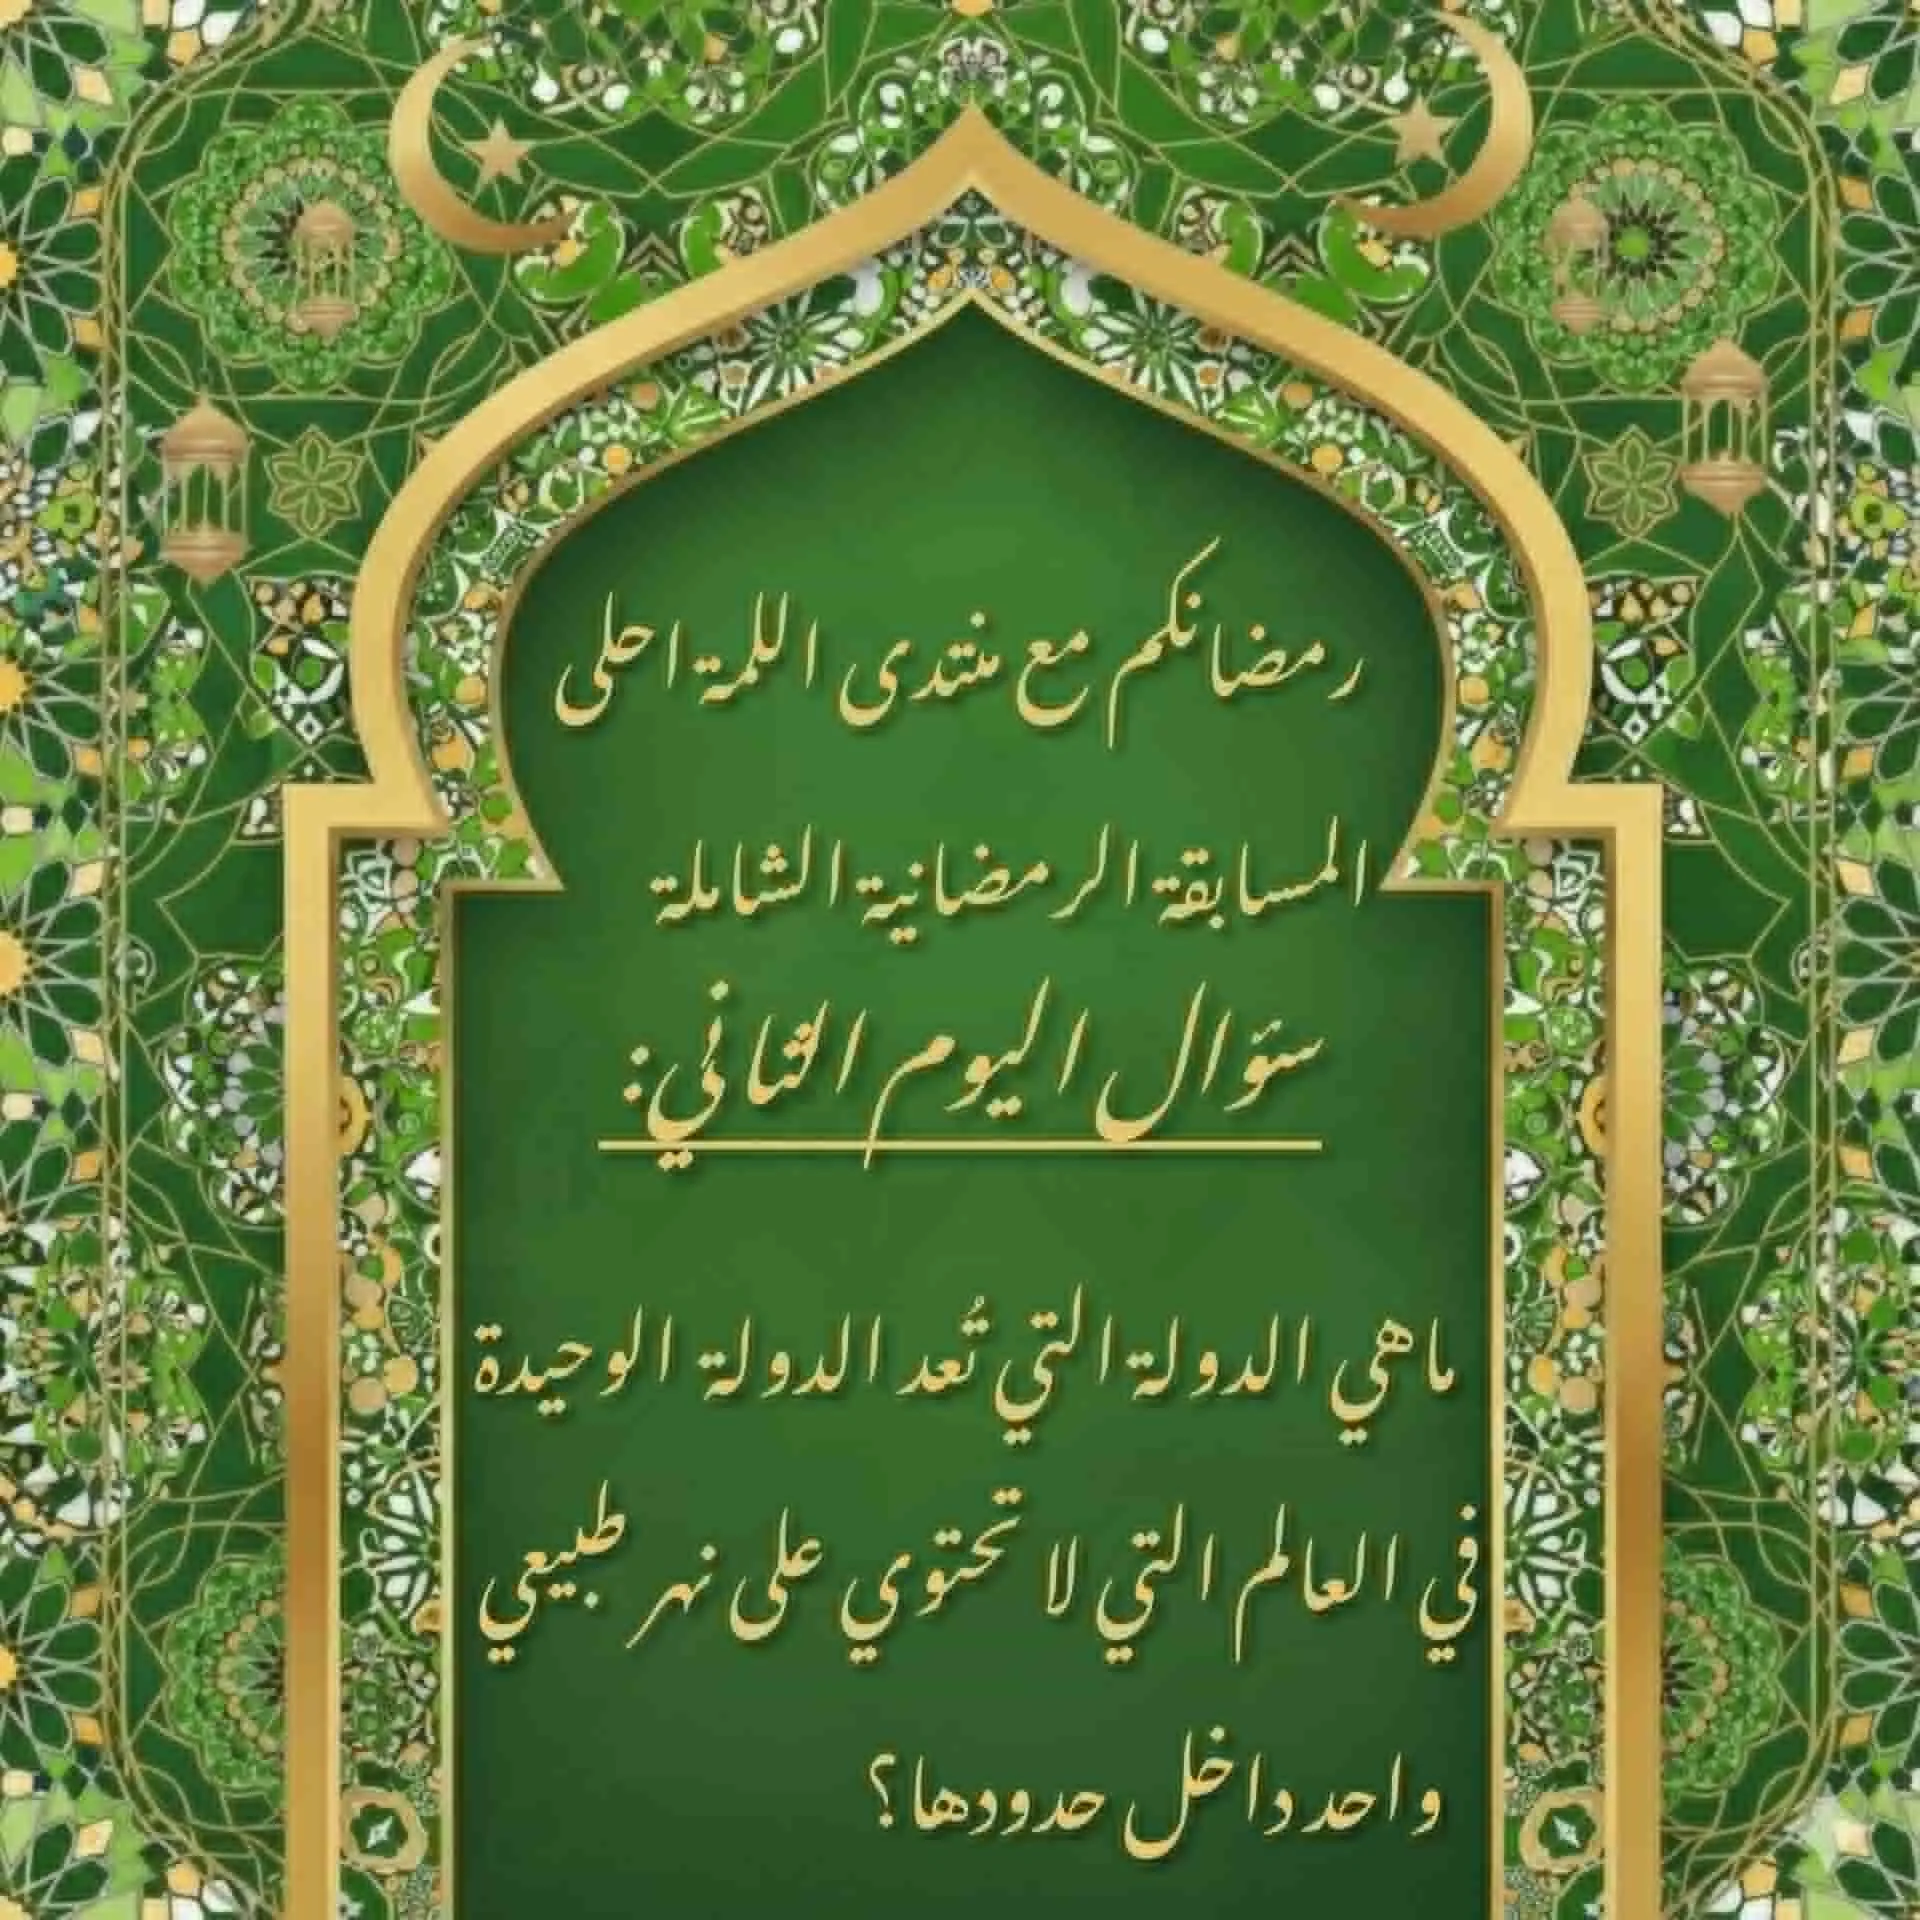 رمضانكم مع منتدى اللمة احلى
المسابقة الرمضانية الشاملة
سؤال اليوم الثاني:
ماهي الدولة التي تُعد الدولة الوحيدة
في العالم التي لا تحتوي على نهر طبيعي
واحد داخل حدودها؟